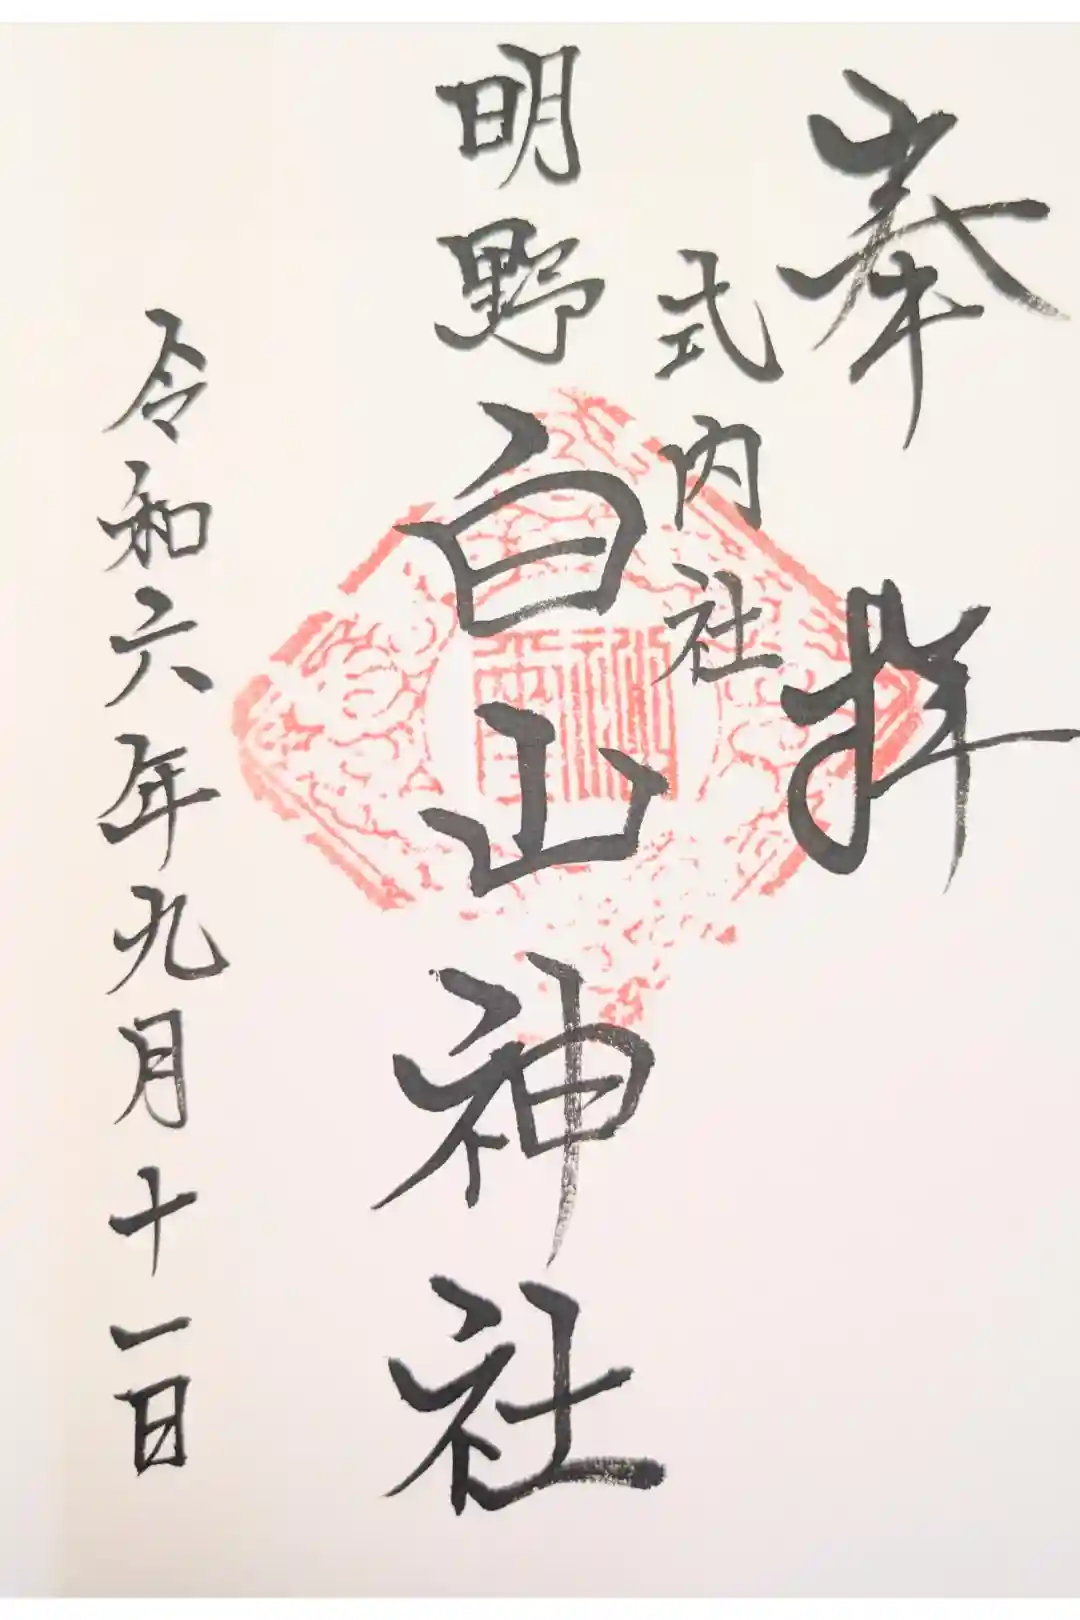 奉拝
式内社
明野
白山神社
令和六年九月十一日